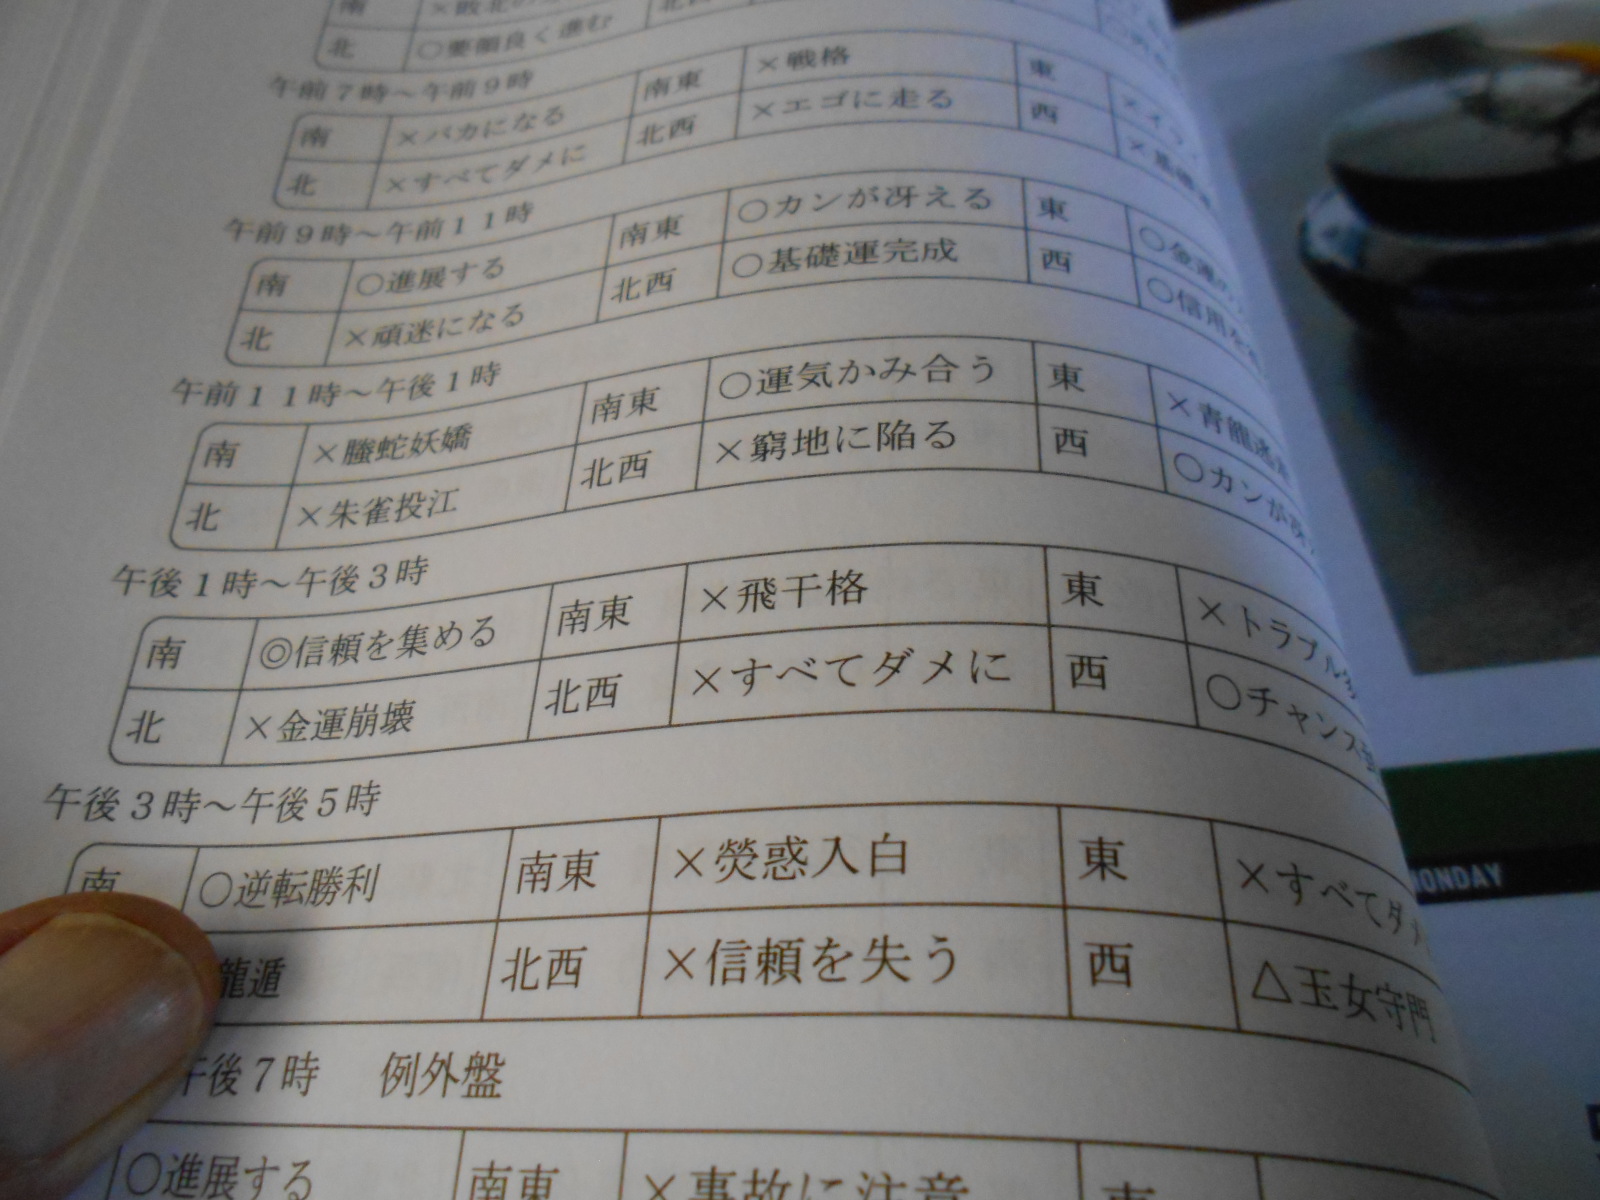 南
北 ○要領良く進む 北西
午前7時～午前9時
南 ×バカになる 南東 ×戦格 東
北 ×すべてダメに 北西 ×エゴに走る 西
午前9時～午前11時
南 ○進展する 南東 ○カンが冴える 東 ○金運の
北 ×頑迷になる 北西 ○基礎運完成 西 ○信用を
午前11時～午後1時
南 ×螣蛇妖嬌 南東 ○運気かみ合う 東 ×青龍逃
北 ×朱雀投江 北西 ×窮地に陥る 西 ○カンが
午後1時～午後3時
南 ◎信頼を集める 南東 ×飛干格 東 ×トラブル
北 ×金運崩壊 北西 ×すべてダメに 西 ○チャンス
午後3時～午後5時
南 ○逆転勝利 南東 ×熒惑入白 東 ×すべてダメ
龍遁 北西 ×信頼を失う 西 △玉女守門
午後7時 例外盤
○進展する 南東 ×事故に注意 東
MONDAY